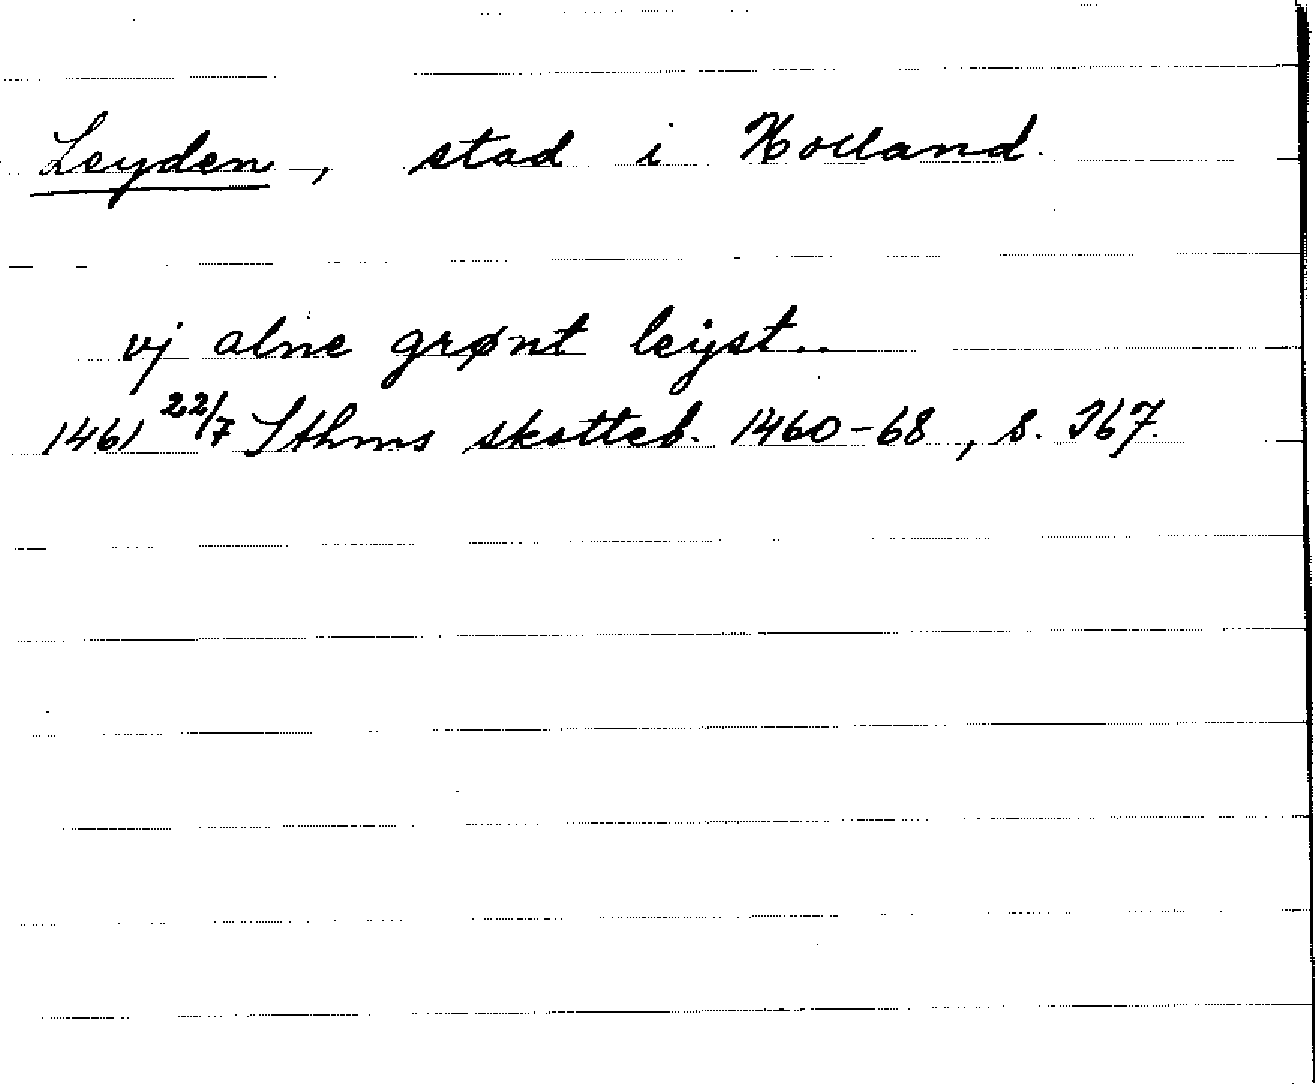 Leyden, stad i Holland.
vj alne grønt leijst..
1461 22/7 Sthms skotteb. 1460-68, s. 367.